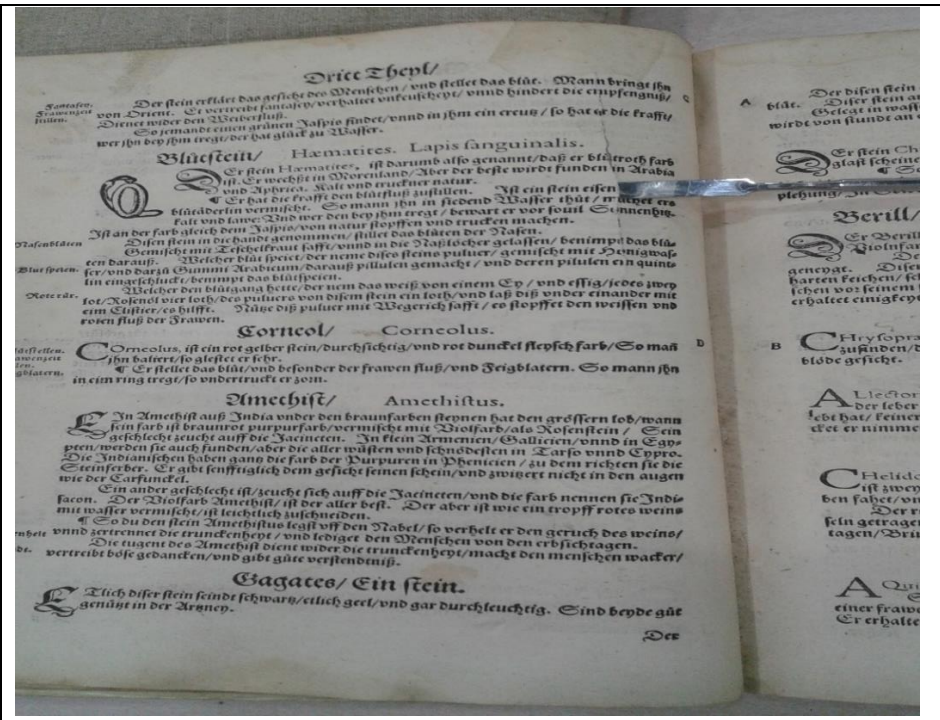 Dritt Theyl/
Der stein erkläret das gesicht des Menschen / vnd stellet das blüt. Mann bringt jhn
von Orient. Er vertreibt fantasey/verhaltet vnkeuscheyt/ vnnd hindert die empfengnüß/
Dienet wider den Weiberfluß.
So jemandt einen grünen Jaspio findet/vnnd in jhm ein creutz / so hat er die krafft/
wer jhn bey jhm tregt/der hat glück zu Wasser.
Fantasey.
Frawenzeit
stillen.
C
Blütstein/ Hæmatites. Lapis sanguinalis.
DEr stein Hæmatites, ist darumb also genannt/daß er blütroth farb
ist. Er wechßt in Morenland/ Aber der beste wirdt funden in Arabia
vnd Aphrica. Kalt vnd truckner natur.
¶ Er hat die krafft den blütfluß zustillen. Jst ein stein eisen
blüäderlin vermischt. So mann jhn in siedend Wasser thüt/ machet ers
kalt vnd lawe: Vnd wer den bey jhm tregt / bewart er vor souil Sonnenhitz.
Jst an der farb gleich dem Jaspio/von natur stopffen vnd trucken machen.
Disen stein in die handt genommen/ stillet das blüten der Nasen.
Gemischt mit Teschelkraut safft/vnnd in die Naßlöcher gelassen/ benimpt das blü-
ten darauß. Welcher blüt speiet/der neme dises steins puluer/ gemischt mit Honigwas-
ser/vnd darzü Gummi Arabicum/darauß pillulen gemacht / vnd deren pilulen ein quint-
lin eingeschluckt/benimpt das blütspeien.
Welcher den blütgang hette/der nem das weiß von einem Ey / vnd essig/jedes zwey
lot/Rosenöl vier loth/des puluers von disem stein ein loth/vnd laß diß vnder einander mit
eim Clistier/es hilfft. Nütze diß puluer mit Wegerich safft / es stopffet den weissen vnd
roten fluß der Frawen.
Nasenblüten
Blut speien.
Rote rür.
Corneol/ Corneolus.
COrneolus, ist ein rot gelber stein/durchsichtig/vnd rot dunckel fleysch farb/So mañ
jhn baliert/so glestet er sehr.
¶ Er stellet das blüt/vnd besonder der frawen fluß/vnd Feigblatern. So mann jhn
in eim ring tregt/so vndertruckt er zorn.
D
Amethist/ Amethistus.
EJn Amethist auß India vnder den braunfarben steynen hat den grössern lob/wann
sein farb ist braunrot purpurfarb/vermischt mit Violfarb/als Rosenstein / Sein
geschlecht zeucht auff die Jacineten. Jn klein Armenien/Gallicien/vnnd in Egy-
pten/werden sie auch funden/aber die aller wüsten vnd schnödesten in Tarso vnnd Cypro.
Die Indianischen haben gantz die farb der Purpuren in Phenicien / zu dem richten sie die
Steinferber. Er gibt senfftiglich dem gesicht seinen schein/vnd zwitzert nicht in den augen
wie der Carfunckel.
Ein ander geschlecht ist/zeucht sich auff die Jacineten/vnd die farb nennen sie Indi-
facon. Der Violfarb Amethist/ ist der aller best. Der aber ist wie ein tropff rotes weins
mit wasser vermischt/ist leichtlich zuschneiden.
¶ So du den stein Amethistus legst vff den Nabel/ so verhelt er den geruch des weins/
vnnd zertrennet die trunckenheyt / vnd lediget den Menschen von den erbsichtagen.
Die tugent des Amethist dient wider die trunckenheyt/macht den menschen wacker/
vertreibt böse gedancken/vnd gibt güte verstendtniß.
Gagates/ Ein stein.
ETlich diser stein seindt schwartz/etlich geel/vnd gar durchleuchtig. Sind beyde güt
genützt in der Artzney.
Der
A
Der disen stein
blüt. Diser stein
Gelegt in wass
wirdt von stundt an
DEr stein Ch
glast scheine
Berill/
DEr Berill
Violnfar
geneygt. Disen
harten keichen/
schen vor seinem
erhaltet einigkeyt
B
CHrysopra
zufinden/
blöde gesicht.
ALlector
der leber
lebt hat/ keiner
cket er nimme
CHelido
ist zwey
ben fahet/vn
Der r
seln getragen
tagen/
AQui
einer frawe
Er erhalte